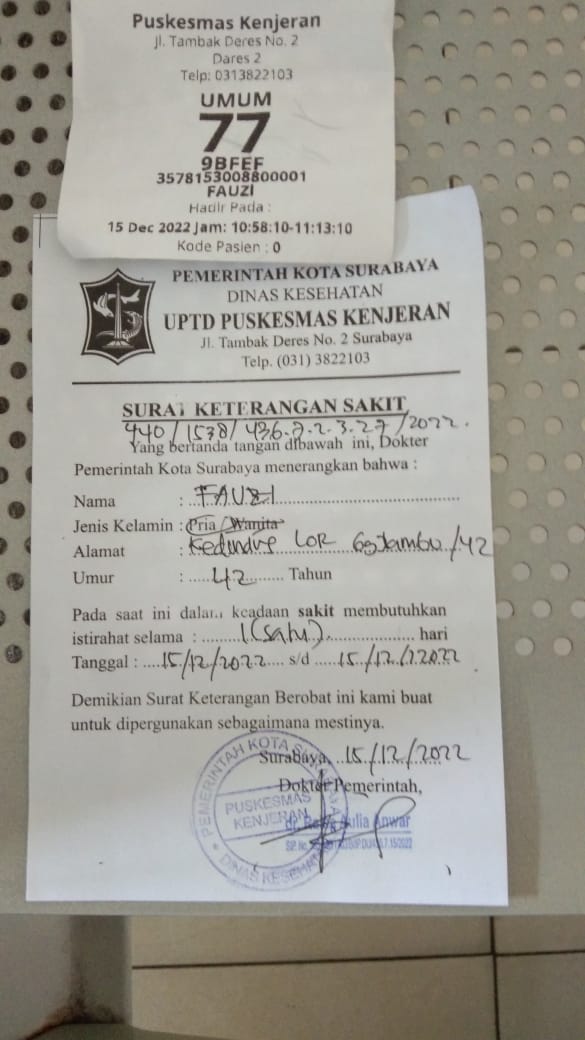 Puskesmas Kenjeran
Jl. Tambak Deres No. 2
Dares 2
Telp: 0313822103
UMUM
77
9BFEF
3578153008800001
FAUZI
Hadir Pada :
15 Dec 2022 Jam: 10:58:10-11:13:10
Kode Pasien : 0
PEMERINTAH KOTA SURABAYA
DINAS KESEHATAN
UPTD PUSKESMAS KENJERAN
Jl. Tambak Deres No. 2 Surabaya
Telp. (031) 3822103
SURAT KETERANGAN SAKIT
440/1538/436.7.2.3.27/2022.
Yang bertanda tangan dibawah ini, Dokter
Pemerintah Kota Surabaya menerangkan bahwa :
Nama : FAUZI
Jenis Kelamin : Pria / Wanita
Alamat : LOR /42
Umur : 42 Tahun
Pada saat ini dalam keadaan sakit membutuhkan
istirahat selama : 1 (satu) hari
Tanggal : 15/12/2022 s/d 15/12/2022
Demikian Surat Keterangan Berobat ini kami buat
untuk dipergunakan sebagaimana mestinya.
Surabaya, 15/12/2022
Dokter Pemerintah,
PEMERINTAH KOTA SURABAYA
PUSKESMAS
KENJERAN
DINAS KESEHATAN
dr. Aulia Anwar